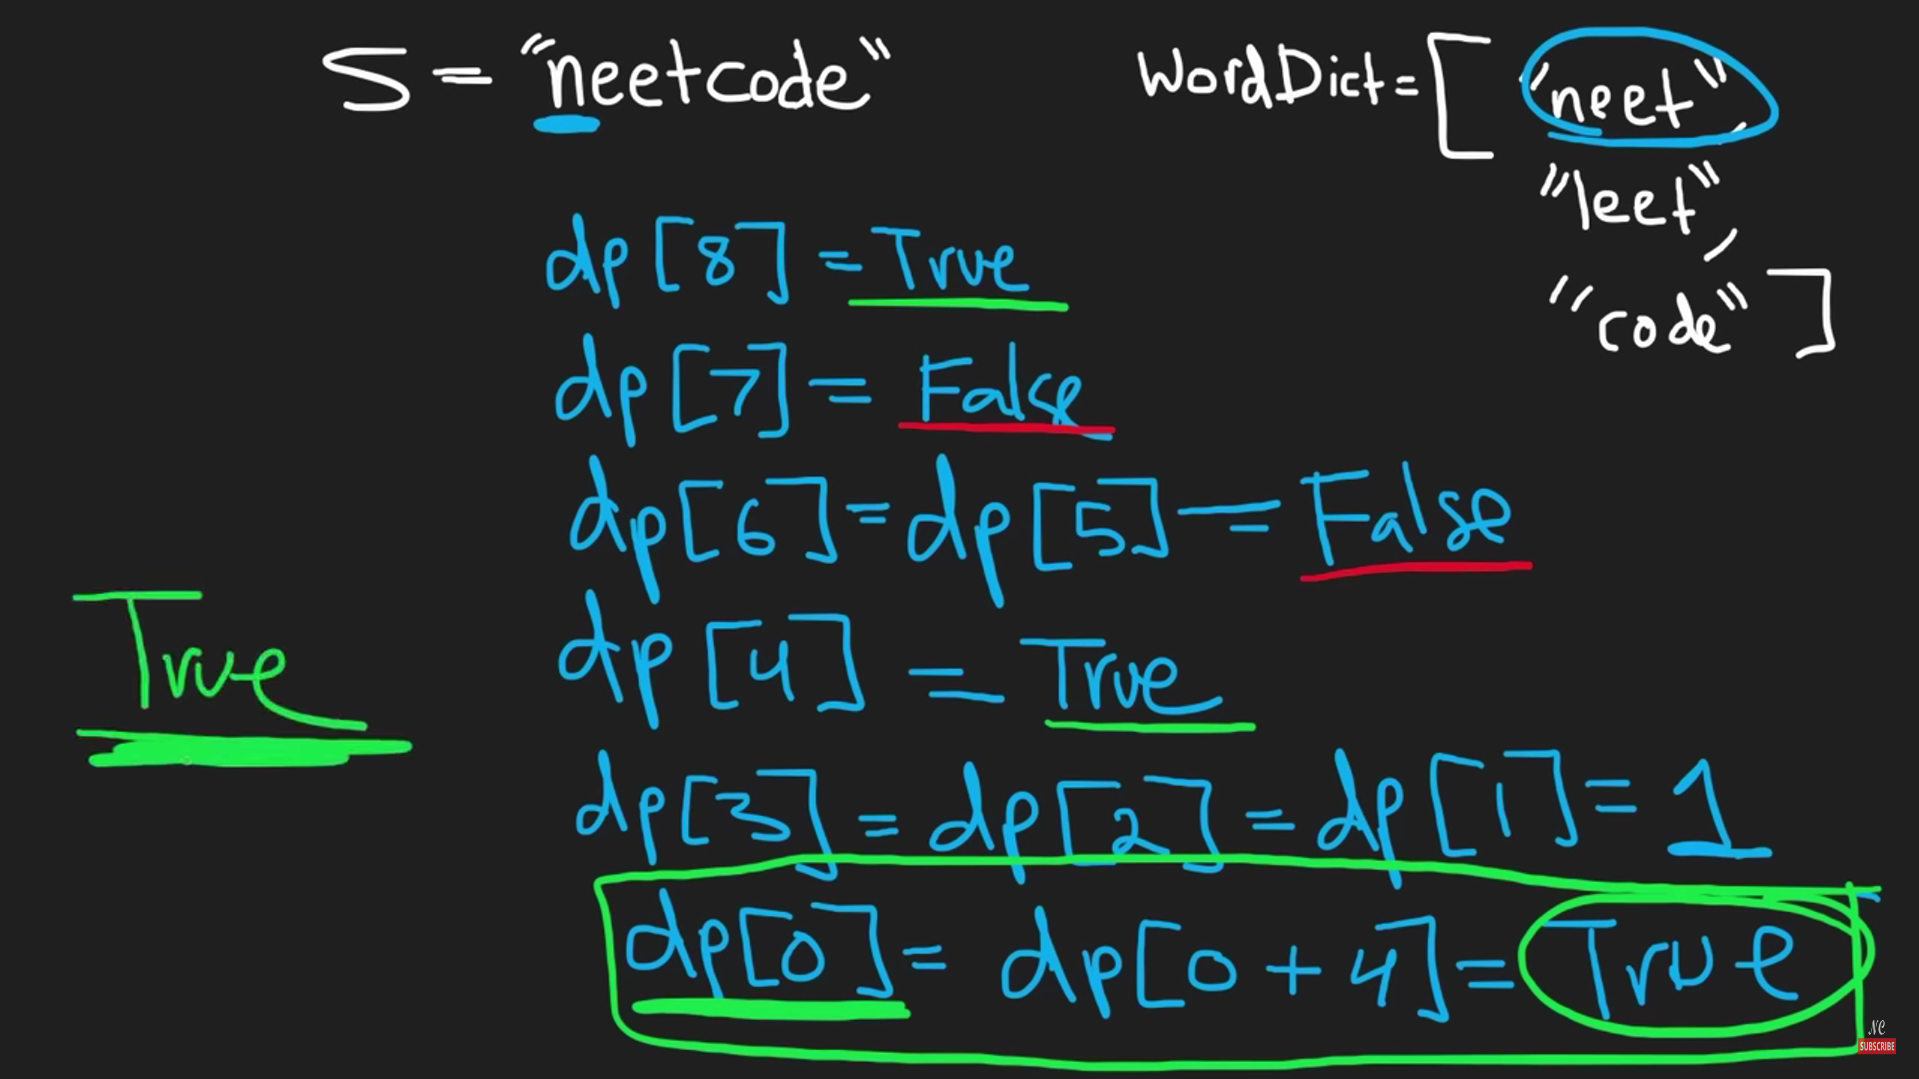 S = "neetcode"
WordDict = ["neet",
"leet",
"code"]
dp[8] = True
dp[7] = False
dp[6] = dp[5] = False
dp[4] = True
True
dp[3] = dp[2] = dp[1] = 1
dp[0] = dp[0+4] = True
NC
SUBSCRIBE